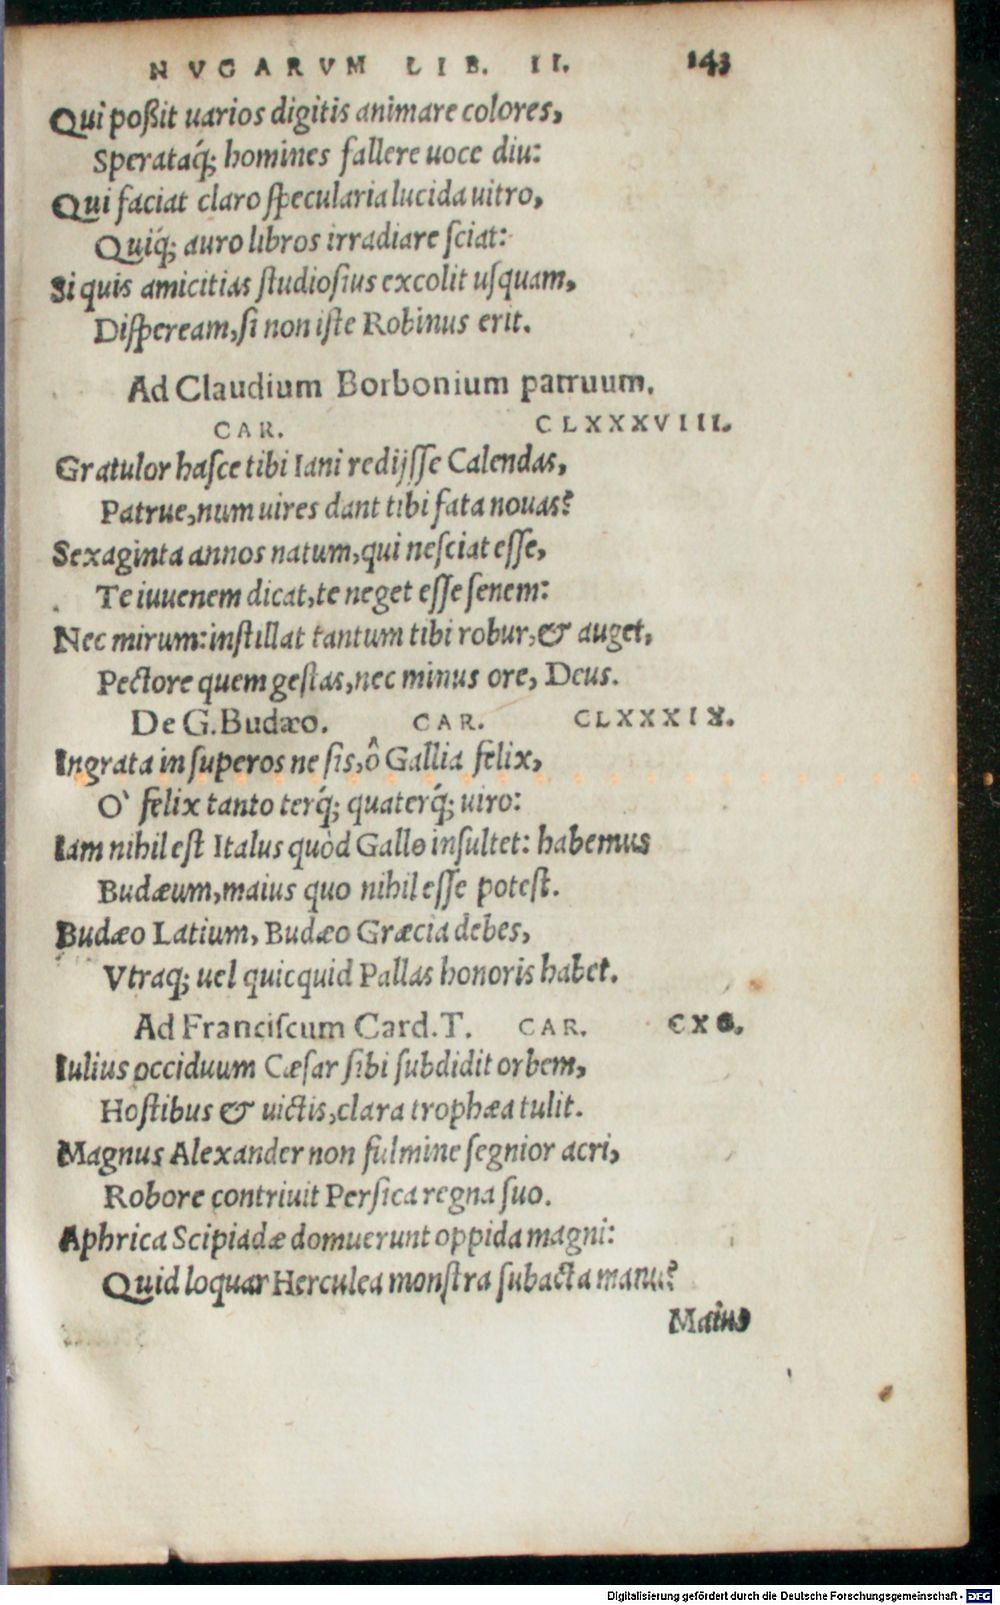 NVGARVM LIB. II. 143
Qui poßit uarios digitis animare colores,
Sperataq́; homines fallere uoce diu:
Qui faciat claro ſpecularia lucida uitro,
Quiq́; auro libros irradiare ſciat:
Si quis amicitias ſtudioſius excolit uſquam,
Diſpeream, ſi non iſte Robinus erit.
Ad Claudium Borbonium patruum.
CAR. CLXXXVIII.
Gratulor haſce tibi Iani redijſſe Calendas,
Patrue, num uires dant tibi fata nouas?
Sexaginta annos natum, qui neſciat eſſe,
Te iuuenem dicat, te neget eſſe ſenem:
Nec mirum: inſtillat tantum tibi robur, & auget,
Pectore quem geſtas, nec minus ore, Deus.
De G. Budæo. CAR. CLXXXIX.
Ingrata in ſuperos ne ſis, ô Gallia felix,
O` felix tanto terq́; quaterq́; uiro:
Iam nihil eſt Italus quòd Gallo inſultet: habemus
Budæum, maius quo nihil eſſe poteſt.
Budæo Latium, Budæo Græcia debes,
Vtraq; uel quicquid Pallas honoris habet.
Ad Franciſcum Card. T. CAR. CXC.
Iulius occiduum Cæſar ſibi ſubdidit orbem,
Hoſtibus & uictis, clara trophæa tulit.
Magnus Alexander non fulmine ſegnior acri,
Robore contriuit Perſica regna ſuo.
Aphrica Scipiadæ domuerunt oppida magni:
Quid loquar Herculea monſtra ſubacta manu?
Maius
Digitalisierung gefördert durch die Deutsche Forschungsgemeinschaft - DFG